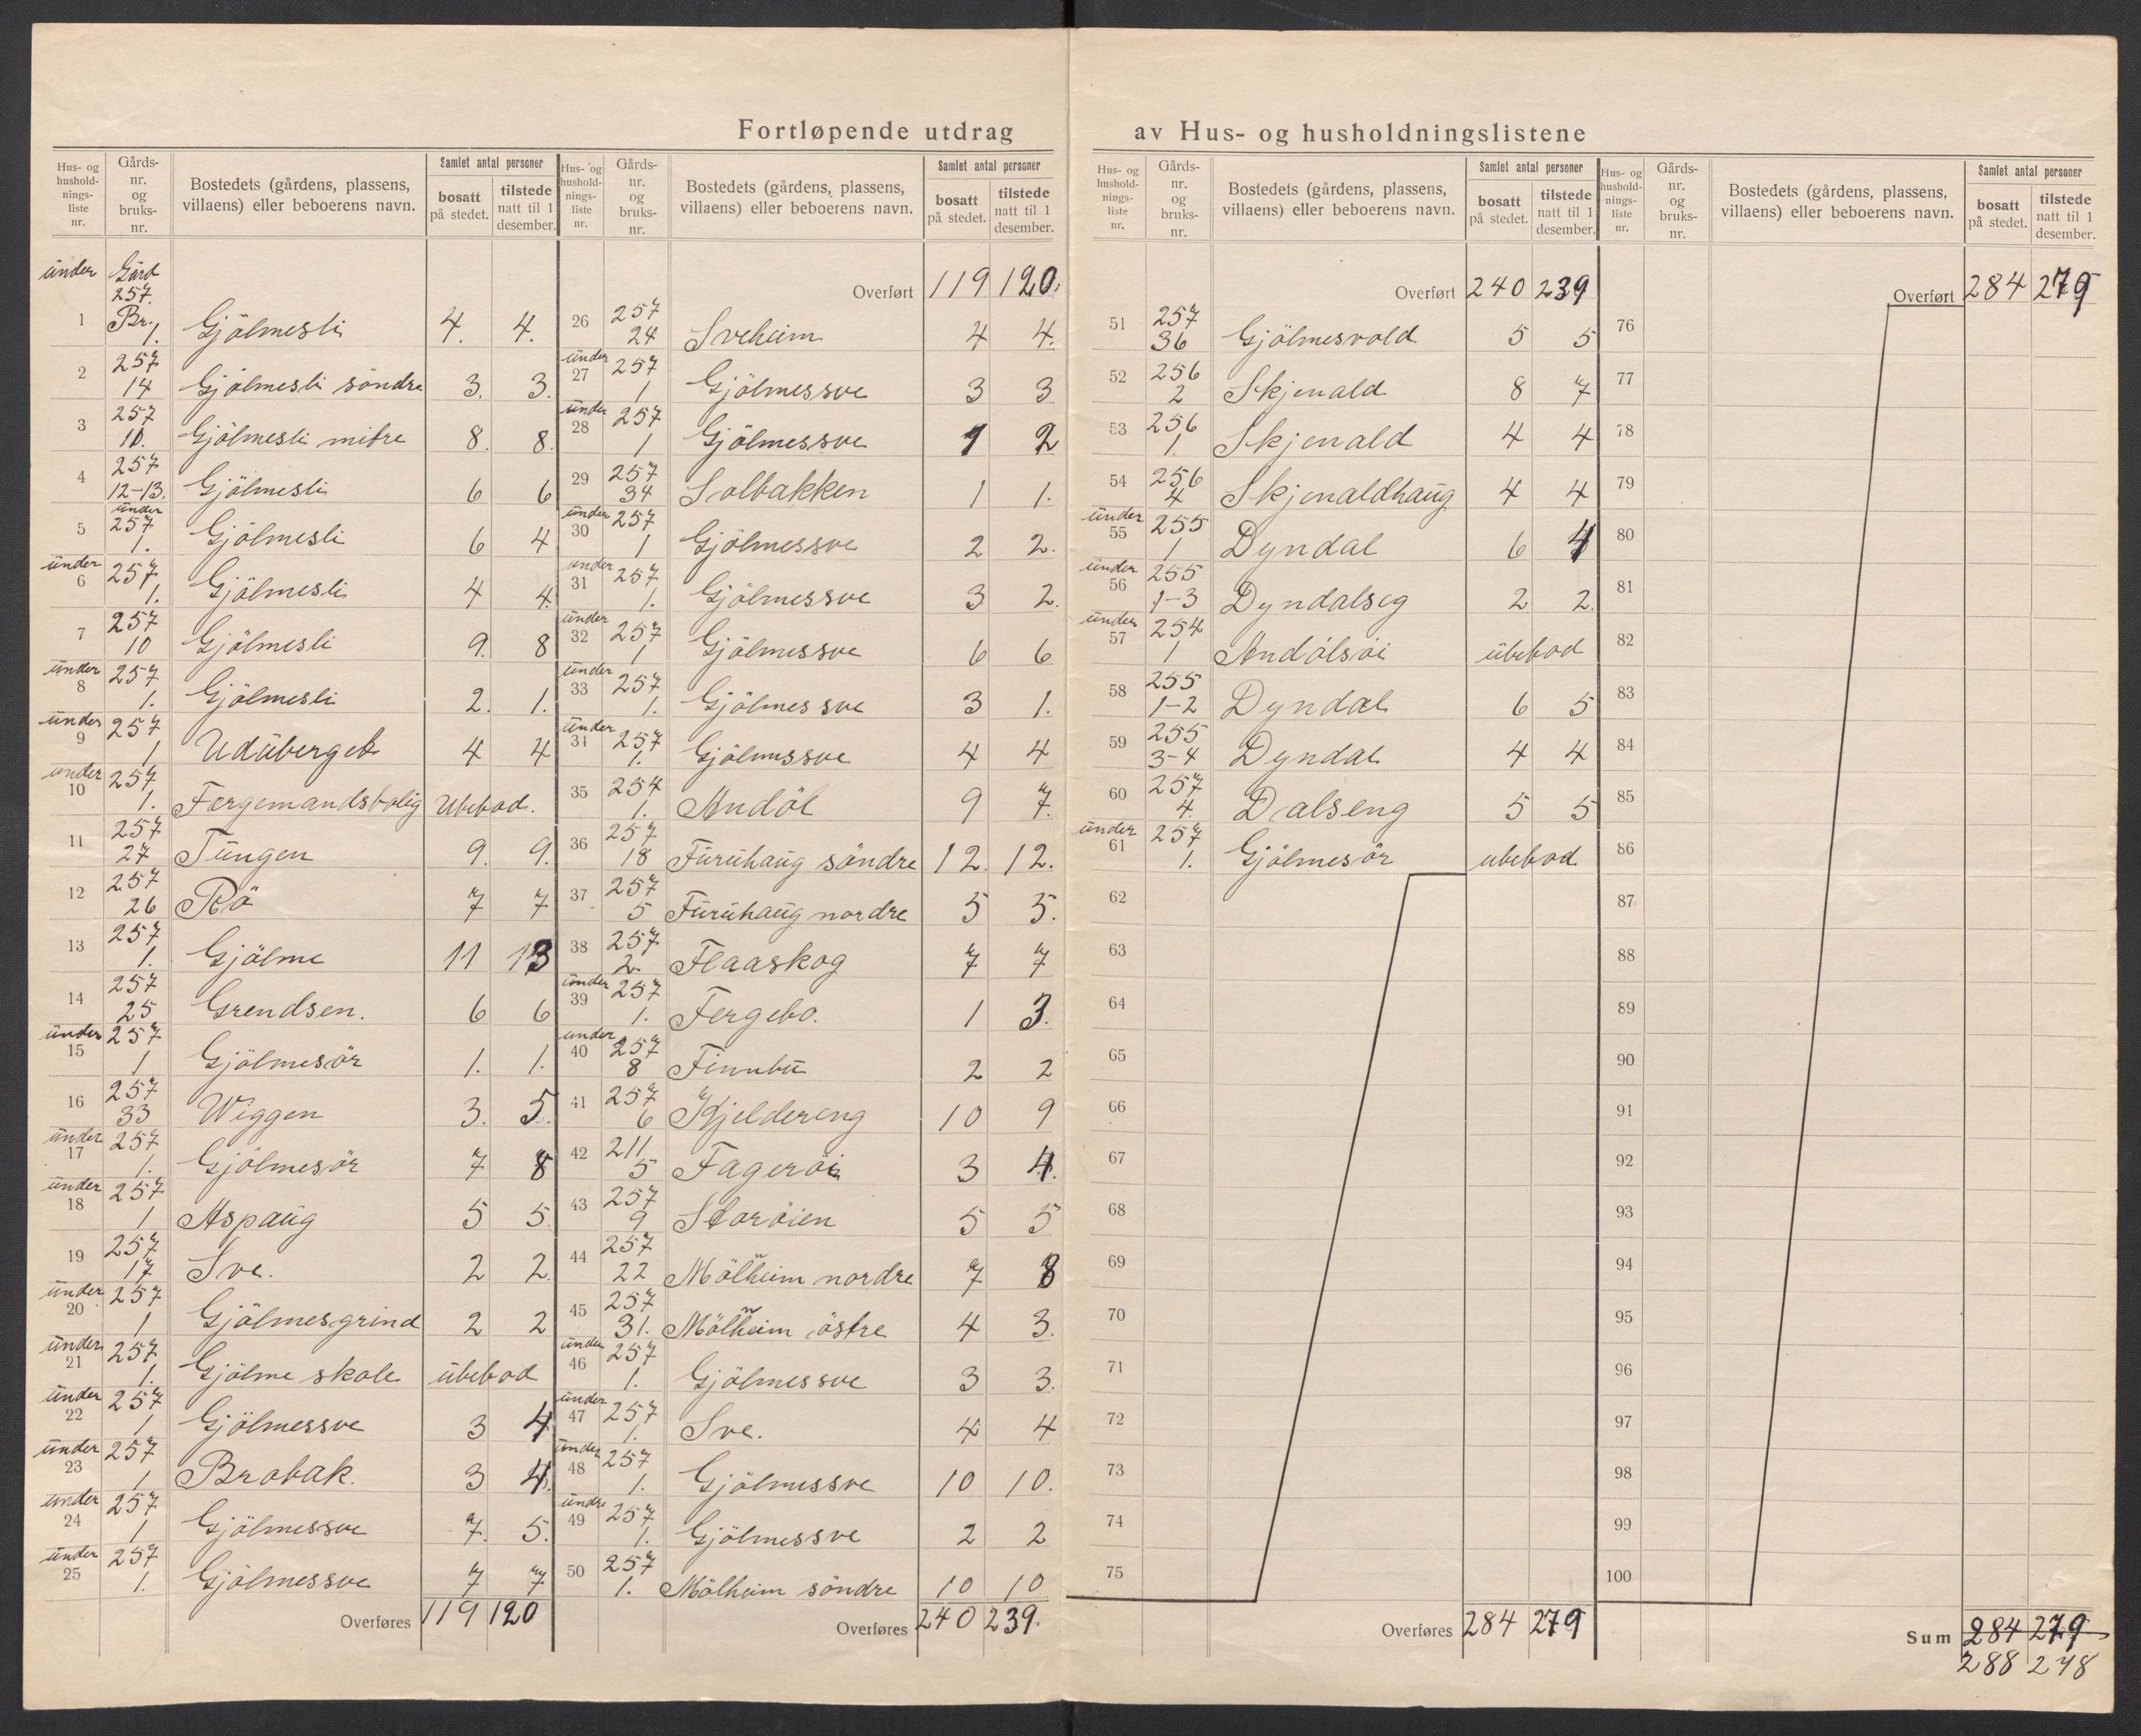 Fortløpende utdrag av Hus- og husholdningslistene
Hus- og husholdnings-liste nr. | Gårds-nr. og bruks-nr. | Bostedets (gårdens, plassens, villaens) eller beboerens navn. | Samlet antal personer bosatt på stedet. | tilstede natt til 1 desember.
under 1 | Gård 257. Br. 1. | Gjölmesli | 4. | 4.
2 | 257 14 | Gjölmesli söndre | 3. | 3.
3 | 257 10. | Gjölmesli mitre | 8. | 8.
4 | 257 12-13. | Gjölmesli | 6 | 6
5 | under 257 1. | Gjölmesli | 6 | 4
under 6 | 257 1. | Gjölmesli | 4 | 4.
7 | 257 10 | Gjölmesli | 9. | 8
under 8 | 257 1. | Gjölmesli | 2. | 1.
under 9 | 257 1 | Udüberget | 4 | 4
under 10 | 257 1. | Fergemandsbolig | Ubebod.
11 | 257 27 | Tüngen | 9. | 9.
12 | 257 26 | Rö | 7 | 7
13 | 257 1. | Gjölme | 11 | 13
14 | 257 25 | Grendsen. | 6 | 6
under 15 | 257 1 | Gjölmesör | 1. | 1.
16 | 257 33 | Wiggen | 3. | 5.
under 17 | 257 1. | Gjölmesör | 7 | 8
under 18 | 257 1 | Aspaüg | 5 | 5
19 | 257 17 | Sve. | 2 | 2.
under 20 | 257 1 | Gjölmesgrind | 2 | 2
under 21 | 257 1. | Gjölme skole | übebod
under 22 | 257 1 | Gjölmessve | 3 | 4
under 23 | 257 1 | Brobak. | 3 | 4.
under 24 | 257 1 | Gjölmessve | 7. | 5.
under 25 | 257 1. | Gjölmessve | 7 | 7
Overføres 119 120
Hus- og husholdnings-liste nr. | Gårds-nr. og bruks-nr. | Bostedets (gårdens, plassens, villaens) eller beboerens navn. | Samlet antal personer bosatt på stedet. | tilstede natt til 1 desember.
Overført 119 120.
26 | 257 24 | Sveheim | 4 | 4.
under 27 | 257 1 | Gjölmessve | 3 | 3
under 28 | 257 1 | Gjölmessve | 1 | 2
29 | 257 34 | Solbakken | 1 | 1.
under 30 | 257 1 | Gjölmessve | 2 | 2.
under 31 | 257 1. | Gjölmessve | 3 | 2.
under 32 | 257 1 | Gjölmessve | 6 | 6
under 33 | 257 1. | Gjölmessve | 3 | 1.
under 34 | 257 1. | Gjölmessve | 4 | 4
35 | 254 1. | Andöl | 9 | 7.
36 | 257 18 | Fürühaüg söndre | 12. | 12.
37 | 257 5 | Fürühaüg nordre | 5 | 5.
38 | 257 2. | Flaaskog | 7 | 7
under 39 | 257 1. | Fergebo. | 1 | 3.
under 40 | 257 8 | Finnbü | 2 | 2
41 | 257 6 | Kjeldereng | 10 | 9
42 | 211 5 | Fageröi | 3 | 4.
43 | 257 9 | Storöien | 5 | 5
44 | 257 22 | Mölheim nordre | 7 | 8
45 | 257 31. | Mölheim östre | 4 | 3.
under 46 | 257 1. | Gjölmessve | 3 | 3.
under 47 | 257 1. | Sve. | 4 | 4
under 48 | 257 1. | Gjölmessve | 10 | 10.
under 49 | 257 1. | Gjölmessve | 2 | 2
50 | 257 1. | Mölheim söndre | 10 | 10
Overføres 240 239.
Hus- og husholdnings-liste nr. | Gårds-nr. og bruks-nr. | Bostedets (gårdens, plassens, villaens) eller beboerens navn. | Samlet antal personer bosatt på stedet. | tilstede natt til 1 desember.
Overført 240 239
51 | 257 36 | Gjölmesvold | 5 | 5
52 | 256 2 | Skjenald | 8 | 7
53 | 256 1. | Skjenald | 4 | 4
54 | 256 4 | Skjenaldhaüg | 4 | 4
under 55 | 255 1 | Dyndal | 6 | 4
under 56 | 255 1-3 | Dyndalseg | 2 | 2.
under 57 | 254 1 | Andölsöi | übebod
58 | 255 1-2 | Dyndal | 6 | 5
59 | 255 3-4 | Dyndal | 4 | 4
60 | 257 4. | Dalseng | 5 | 5
under 61 | 257 1. | Gjölmesör | ubebod.
62
63
64
65
66
67
68
69
70
71
72
73
74
75
Overføres 284 279
Hus- og husholdnings-liste nr. | Gårds-nr. og bruks-nr. | Bostedets (gårdens, plassens, villaens) eller beboerens navn. | Samlet antal personer bosatt på stedet. | tilstede natt til 1 desember.
Overført 284 279
76
77
78
79
80
81
82
83
84
85
86
87
88
89
90
91
92
93
94
95
96
97
98
99
100
Sum 284 279
288 278